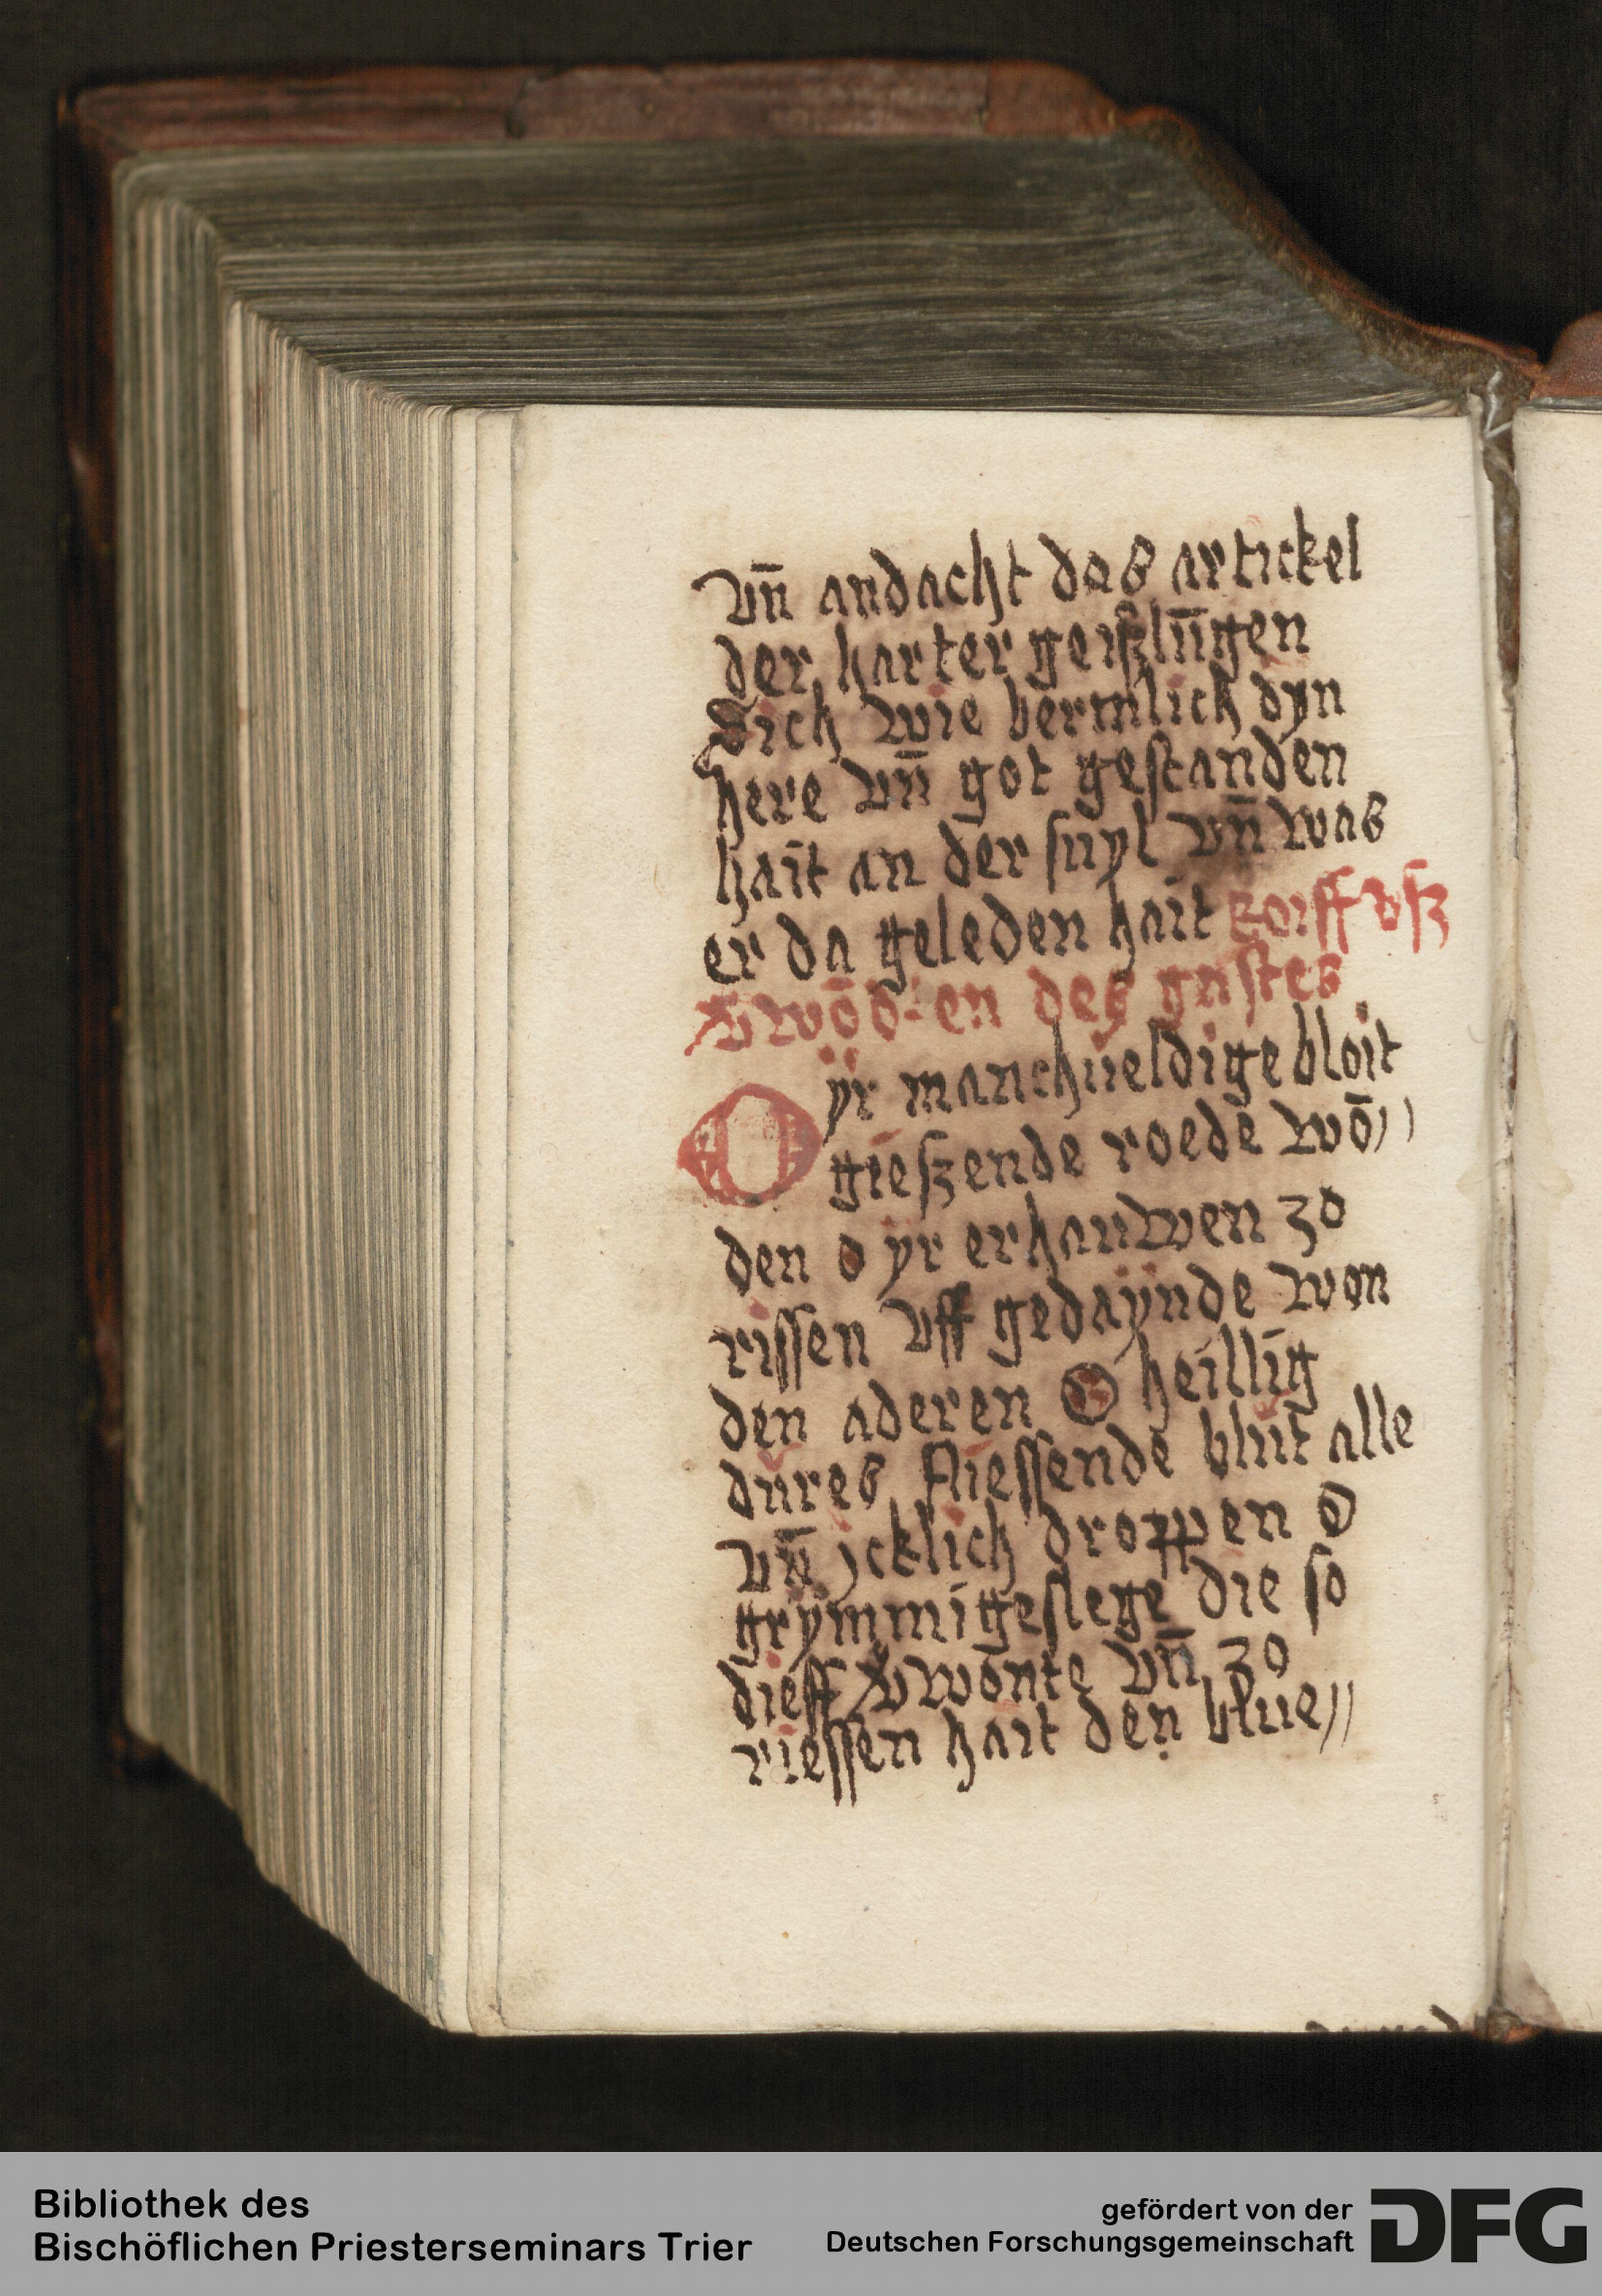 vn̄ andacht das artickel
der harter geißlūgen
Sich wie bermlich dyn
here vn̄ got gestanden
hait an der suyl vn̄ was
er da geleden hait Roiff vsz
wōd en des gastes
O yr manchueldige bloit
gieszende roede wō//
den o yr erhauwen zo
rissen vff gedaynde won
den aderen O heillig
dures fliessende blut alle
vn̄ jcklich droppen O
grymmige slege die so
dieff wonte vn̄ zo
riessen hait den blue//
Bibliothek des
Bischöflichen Priesterseminars Trier
gefördert von der
Deutschen Forschungsgemeinschaft
DFG